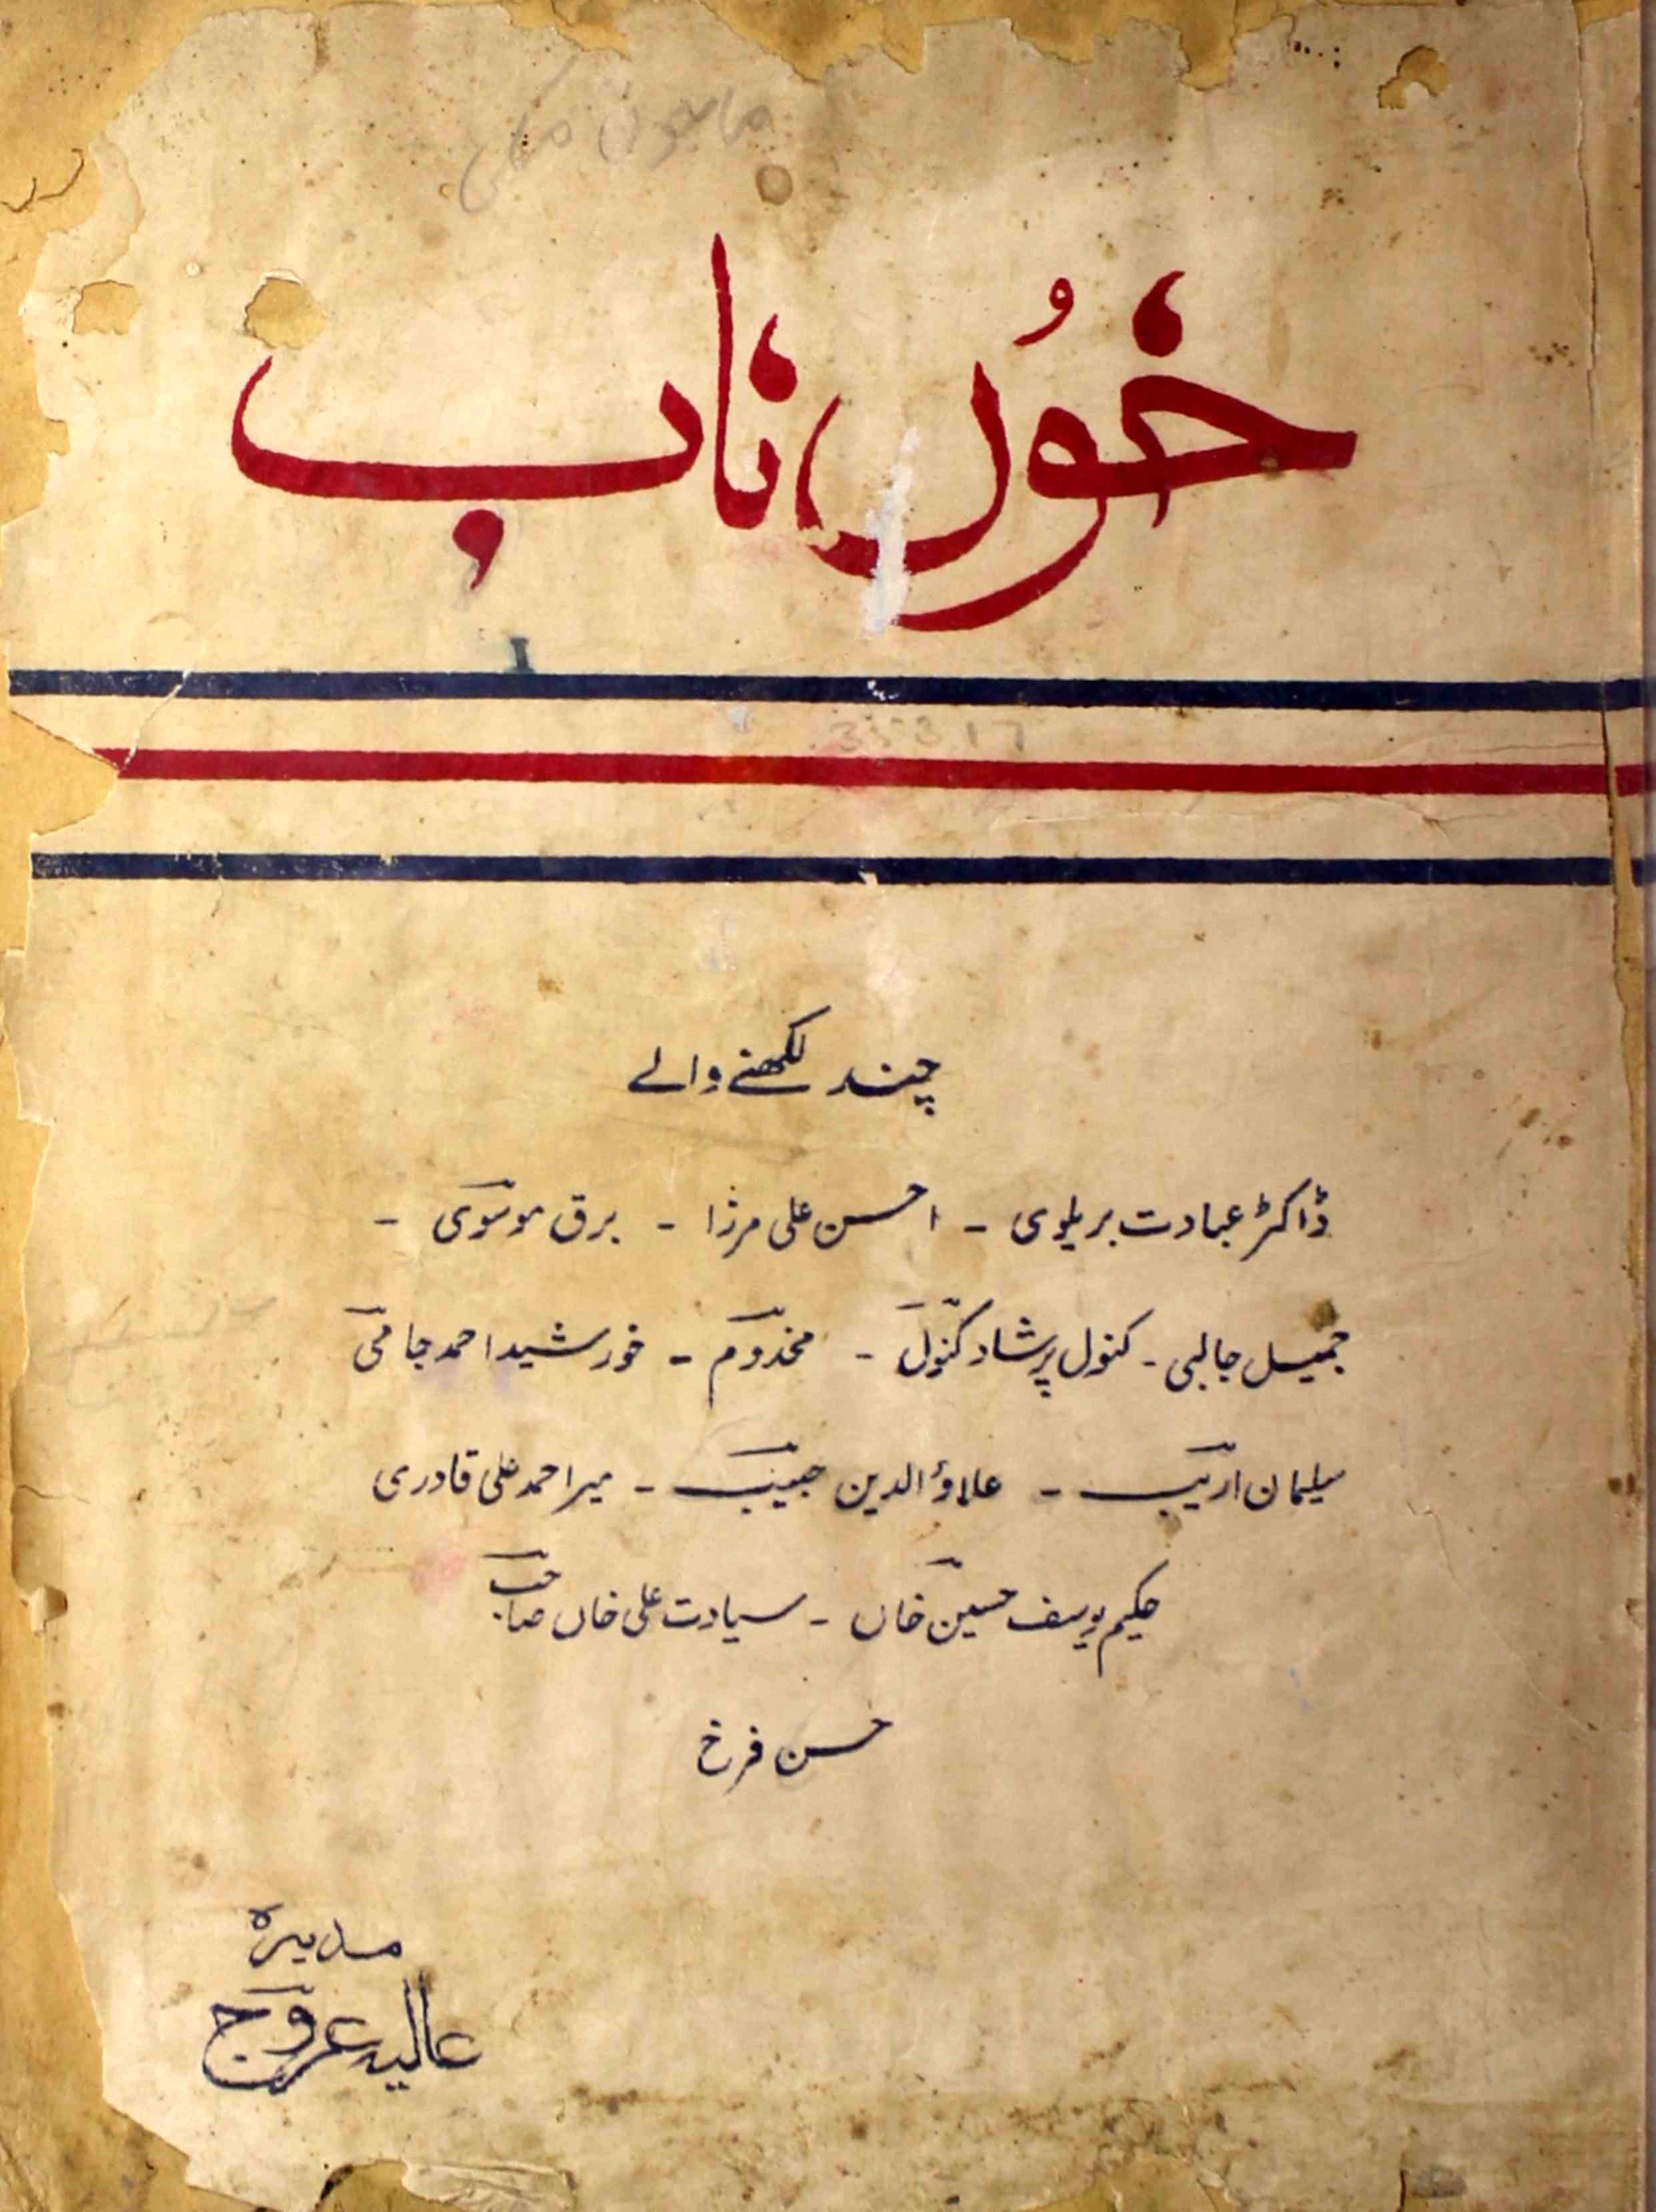 خوُں ناب
I
35317
چند لکھنے والے
ڈاکٹر عبادت بریلوی - احسن علی مرزا - برق موسوی -
جمیل جالبی - کنول پرشاد کنول - مخدوم - خورشید احمد جامی
سلیمان اریب - علاؤ الدین حبیب - میر احمد علی قادری
حکیم یوسف حسین خاں - سیادت علی خاں صاحب
حسن فرخ
مدیرہ
عالیہ عروج